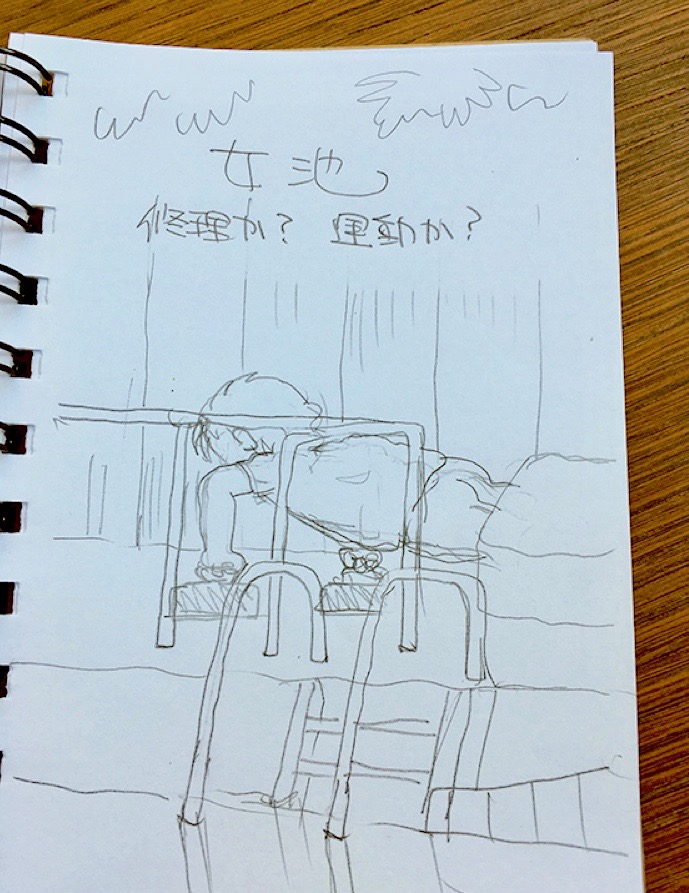 女池
修理か? 運動か?